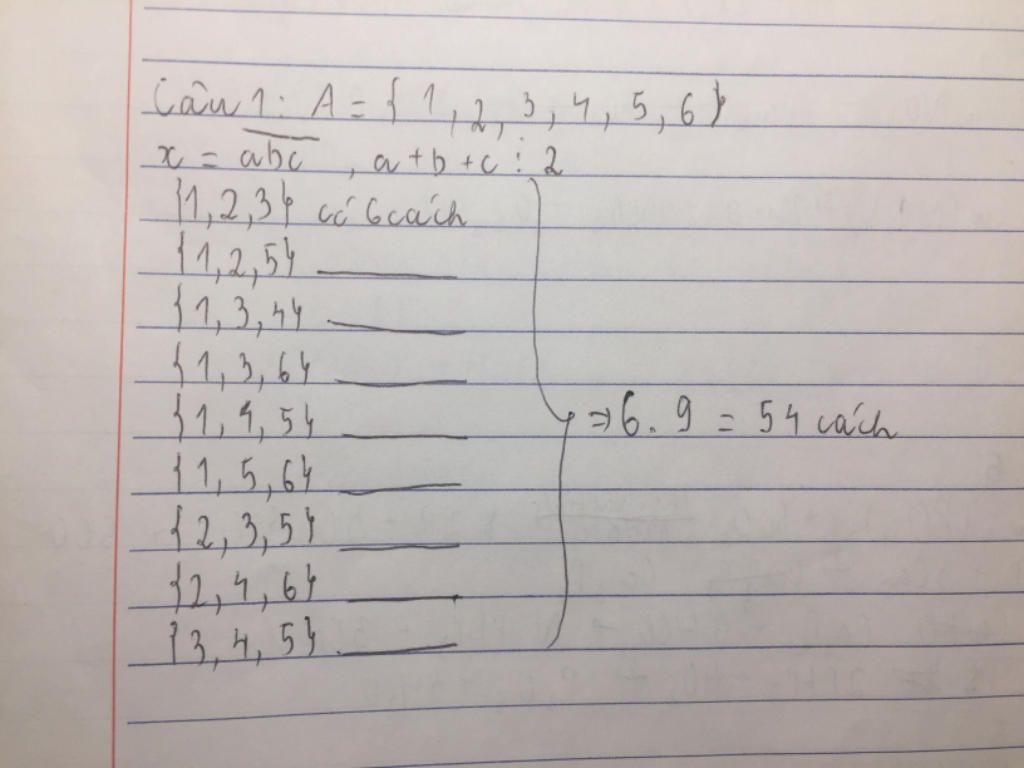 Câu 1: A = { 1, 2, 3, 4, 5, 6 }
x = abc , a + b + c ⋮ 2
{1, 2, 3} có 6 cách
{1, 2, 5} ________
{1, 3, 4} ________
{1, 3, 6} ________
{1, 4, 5} ________
⇒ 6. 9 = 54 cách
{1, 5, 6} ________
{2, 3, 5} ________
{2, 4, 6} ________
{3, 4, 5} ________